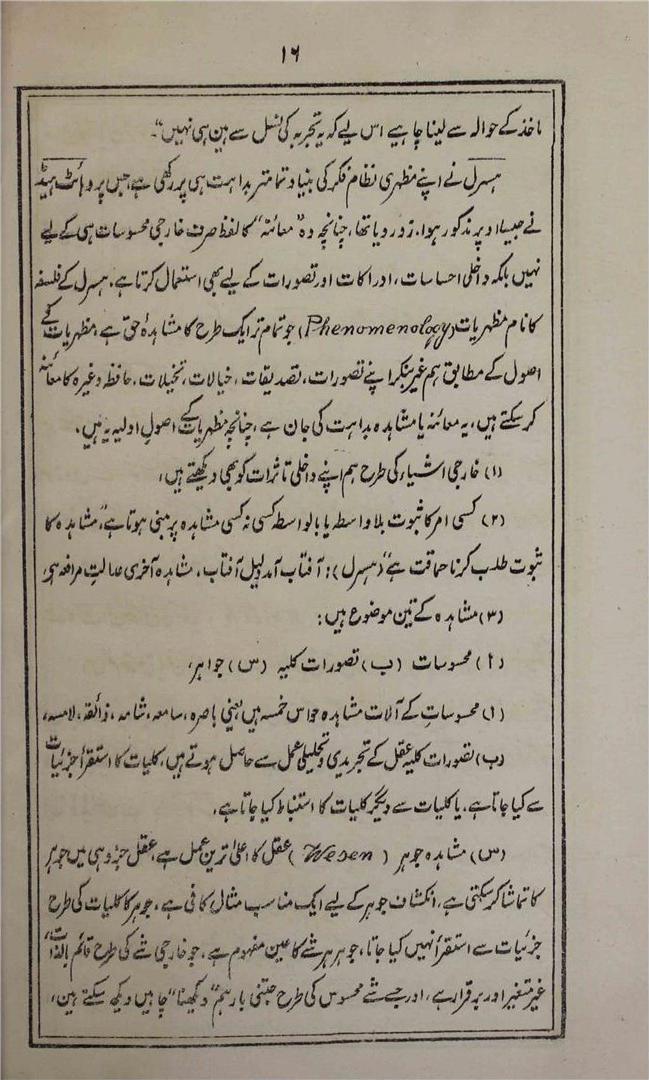 ۱۶
ماخذ کے حوالہ سے لینا چاہیے اس لیے کہ یہ تجربہ کی نسل سے ہیں ہی نہیں"۔
ہسرل نے اپنے مظہری نظام فکر کی بنیاد تمامتر بداہت ہی پر رکھی ہے، جس پر وہائٹ ہیڈ
نے جیسا اوپر مذکور ہوا۔ زور دیا تھا، چنانچہ وہ "معائنہ" کا لفظ صرف خارجی محسوسات ہی کے لیے
نہیں بلکہ داخلی احساسات، ادراکات اور تصورات کے لیے بھی استعمال کرتا ہے، ہسرل کے فلسفہ
کا نام مظہریات (Phenomenology) جو تمام تر ایک طرح کا مشاہدۂ حق ہے، مظہریات کے
اصول کے مطابق ہم غیر بنکر اپنے تصورات، تصدیقات، خیالات، تخیلات، حافظہ وغیرہ کا معائنہ
کر سکتے ہیں، یہ معائنہ یا مشاہدہ بداہت کی جان ہے، چنانچہ مظہریات کے اصولِ اولیہ یہ ہیں۔
(۱) خارجی اشیاء کی طرح ہم اپنے داخلی تاثرات کو بھی دیکھتے ہیں،
(۲) کسی امر کا ثبوت بلاواسطہ یا بالواسطہ کسی نہ کسی مشاہدہ پر مبنی ہوتا ہے "مشاہدہ کا
ثبوت طلب کرنا حماقت ہے" (ہسرل): آفتاب آمد دلیل آفتاب، مشاہدہ آخری عدالتِ مرافعہ ہے،
(۳) مشاہدہ کے تین موضوع ہیں:
(ا) محسوسات (ب) تصورات کلیہ (س) جواہر،
(ا) محسوسات کے آلات مشاہدہ حواس خمسہ ہیں یعنی باصرہ، سامعہ، شامہ، ذائقہ، لامسہ،
(ب) تصورات کلیہ عقل کے تجریدی و تحلیلی عمل سے حاصل ہوتے ہیں، کلیات کا استقرأ جزئیات
سے کیا جاتا ہے، یا کلیات سے دیگر کلیات کا استنباط کیا جاتا ہے،
(س) مشاہدہ جوہر (Wesen) عقل کا اعلیٰ ترین عمل ہے، عقل جزو ہی میں جوہر
کا تماشا کر سکتی ہے، انکشاف جوہر کے لیے ایک مناسب مثال کافی ہے، جوہر کا کلیات کی طرح
جزئیات سے استقرأ نہیں کیا جاتا، جوہر ہر شے کا عین مفہوم ہے، جو خارجی شے کی طرح قائم بالذات،
غیر متغیر اور برقرار ہے، اور جسے شے محسوس کی طرح جتنی بار ہم "دیکھنا" چاہیں دیکھ سکتے ہیں،